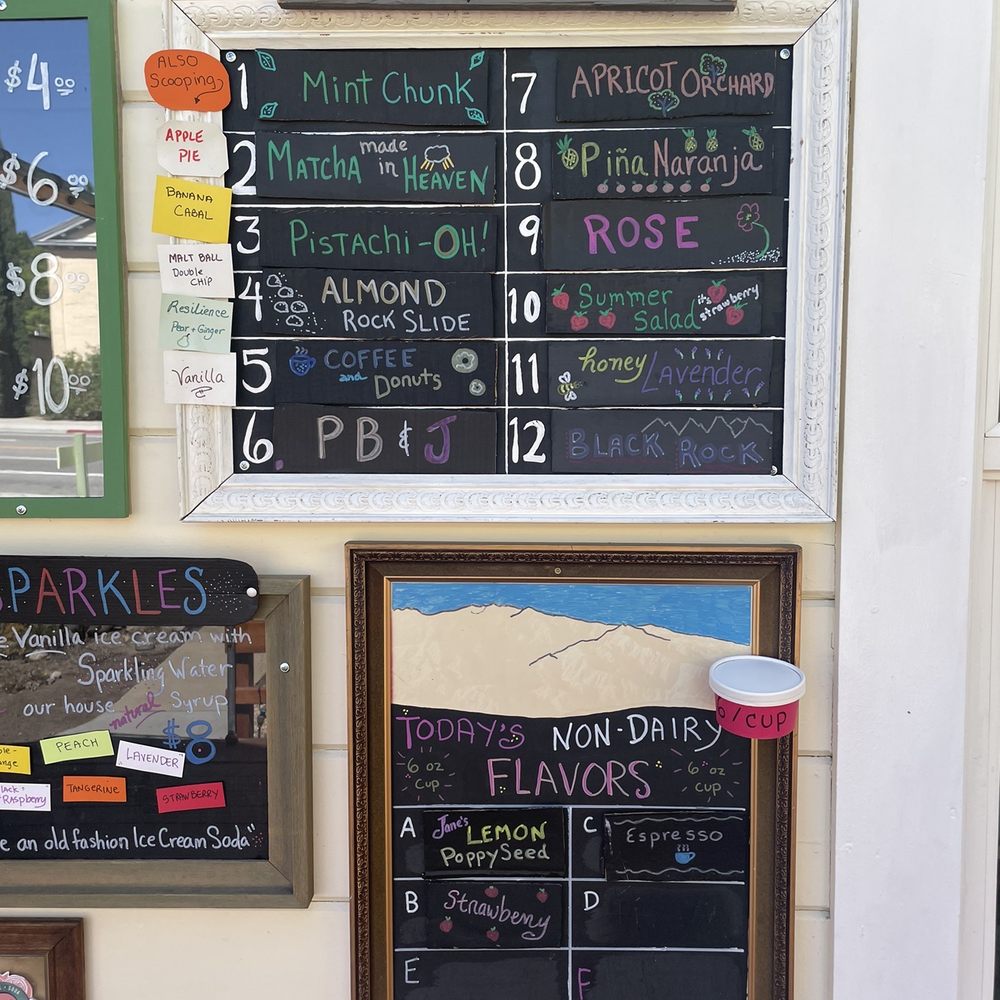 $4.00
$6.00
$8.00
$10.00
ALSO
Scooping
APPLE
PIE
BANANA
CABAL
MALT BALL
Double
CHIP
Resilience
Pear + Ginger
Vanilla
1 Mint Chunk
2 MATCHA made in HEAVEN
3 PISTACHI-OH!
4 ALMOND
ROCK SLIDE
5 COFFEE
and DONUTS
6. PB & J
7 APRICOT ORCHARD
8 Piña Naranja
9 ROSE
10 Summer
Salad it's strawberry
11 honey Lavender
12 BLACK ROCK
SPARKLES
Vanilla ice cream with
Sparkling Water
our house natural Syrup
$8
PEACH
LAVENDER
TANGERINE
Raspberry
STRAWBERRY
an old fashion Ice Cream Soda"
/CUP
TODAY'S NON-DAIRY
FLAVORS
6 oz
Cup
6 oz
Cup
A Jane's LEMON
PoppySeed
B Strawberry
C Espresso
D
E
F